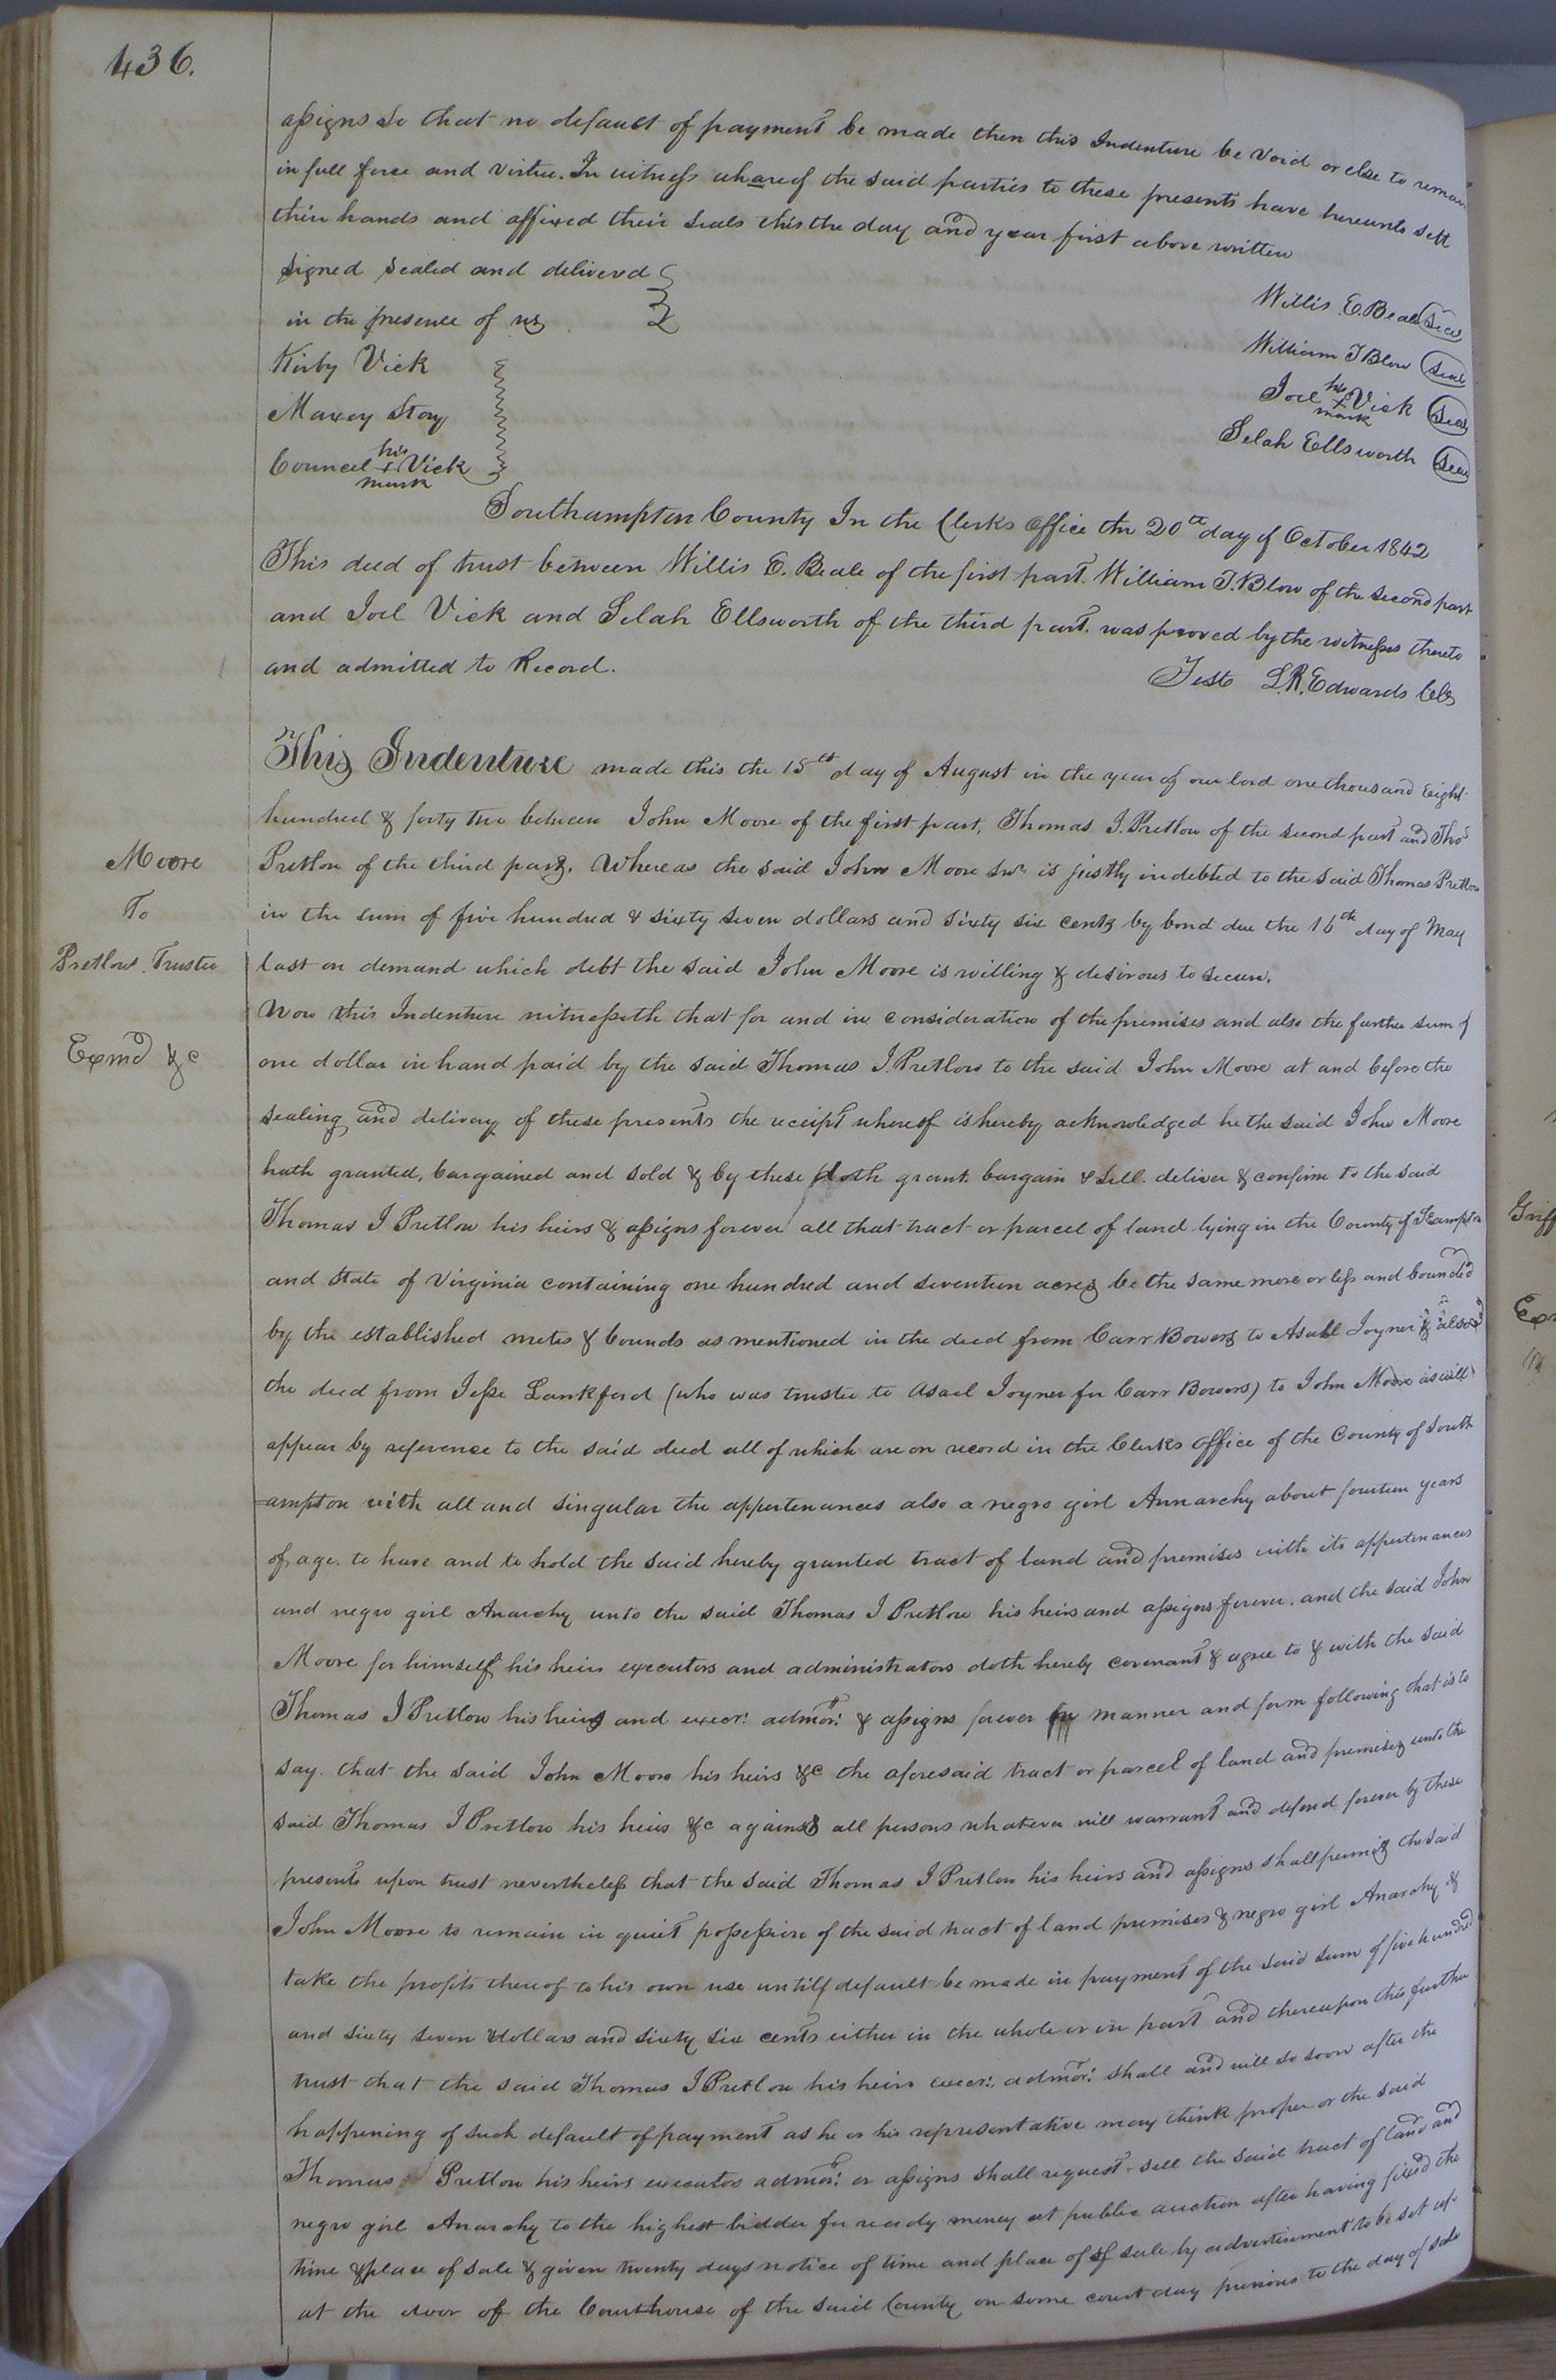 436.
assigns so that no default of payment be made then this Indenture be void or else to remain
in full force and virtue. In witness whareof the said parties to these presents have hereunto sett
their hands and affixed their seals this the day and year first above written
signed sealed and delivered
in the presence of us
Willis E. Beale Seal
Kirby Vick
William T Blow Seal
Maxey Story
Joel his + mark Vick Seal
Council his + mark Vick
Selah Ellsworth Seal
Southampton County In the Clerks Office the 20th day of October 1842
This deed of trust between Willis E. Beale of the first part. William T. Blow of the second part
and Joel Vick and Selah Ellsworth of the third part. was proved by the witnesses thereto
and admitted to Record.
Teste L.R. Edwards Clk
This Indenture made this the 15th day of August in the year of our lord one thousand Eight
hundred & forty two between John Moore of the first part, Thomas J. Pretlow of the second part and Thos
Moore
Pretlow of the third part. Whereas the said John Moore Snr is justly indebted to the said Thomas Pretlow
To
in the sum of five hundred & sixty seven dollars and sixty six cents by bond due the 16th day of May
Pretlow Trustee
last on demand which debt the said John Moore is willing & desirous to secure.
Now this Indenture witnesseth that for and in consideration of the premises and also the further sum of
Exmd &c
one dollar in hand paid by the said Thomas J. Pretlow to the said John Moore at and before the
sealing and delivery of these presents the receipt whereof is hereby acknowledged he the said John Moore
hath granted, bargained and sold & by these doth grant. bargain & sell. deliver & confirm to the said
Thomas J Pretlow his heirs & assigns forever all that tract or parcel of land lying in the County of SHampton
and State of Virginia containing one hundred and seventeen acres be the same more or less and bounded
by the established metes & bounds as mentioned in the deed from Carr Bowers to Asael Joyner & also
the deed from Jesse Lankford (who was trustee to Asael Joyner for Carr Bowers) to John Moore as will
appear by reference to the said deed all of which are on record in the Clerks office of the County of South
=ampton with all and singular the appertenances also a negro girl Annarchy about fourteen years
of age. to have and to hold the said hereby granted tract of land and premises with its appertenances
and negro girl Anarchy unto the said Thomas J Pretlow his heirs and assigns forever. and the said John
Moore for himself his heirs executors and administrators doth hereby covenant & agree to & with the said
Thomas J Pretlow his heirs and exeor: admor: & assigns forever in manner and form following that is to
say. that the said John Moore his heirs &c the aforesaid tract or parcel of land and premises unto the
said Thomas J Pretlow his heirs &c against all persons whatever will warrant and defend forever by these
presents upon trust nevertheless that the said Thomas J Pretlow his heirs and assigns shall permit the said
John Moore to remain in quiet possession of the said tract of land premises & negro girl Anarchy &
take the profits thereof to his own use untill default be made in payment of the said sum of five hundred
and sixty seven dollars and sixty six cents either in the whole or in part and thereupon this further
trust that the said Thomas J Pretlow his heirs exeor: admor: shall and will so soon after the
happening of such default of payment as he or his representative may think proper or the said
Thomas Pretlow his heirs executors admor: or assigns shall request. sell the said tract of land and
negro girl Anarchy to the highest bidder for ready money at public auction after having fixed the
time & place of sale & given twenty days notice of time and place of sale by advertisement to be set up
at the door of the Courthouse of the said County on some court day previous to the day of sale